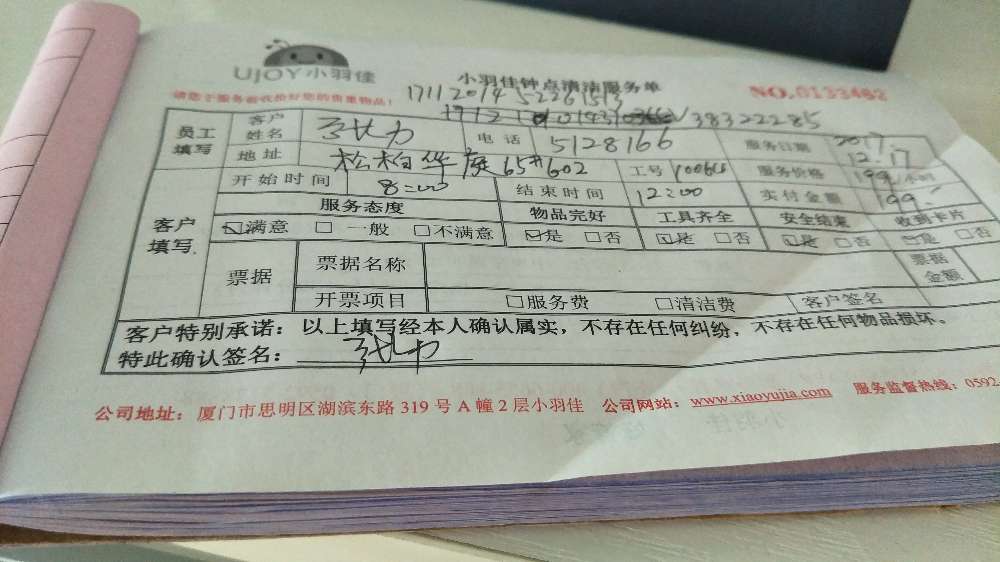 UJOY小羽佳
小羽佳钟点清洁服务单
请您于服务前收拾好您的贵重物品! NO.0133482
17112014522261513
38322285
员工填写 客户姓名 电话 5128166 服务日期 2017.12.17
地址 松柏华庭65#602 工号 服务价格 199 小时
开始时间 8:00 结束时间 12:00 实付金额 199.
客户填写 服务态度 物品完好 工具齐全 安全结束 收到卡片
☑满意 □一般 □不满意 ☑是 □否 ☑是 □否 ☑是 □否 ☑是 □否
票据 票据名称 票据金额
开票项目 □服务费 □清洁费 客户签名
客户特别承诺：以上填写经本人确认属实，不存在任何纠纷，不存在任何物品损坏。
特此确认签名：
公司地址：厦门市思明区湖滨东路 319 号 A 幢 2 层小羽佳 公司网站：www.xiaoyujia.com 服务监督热线：0592